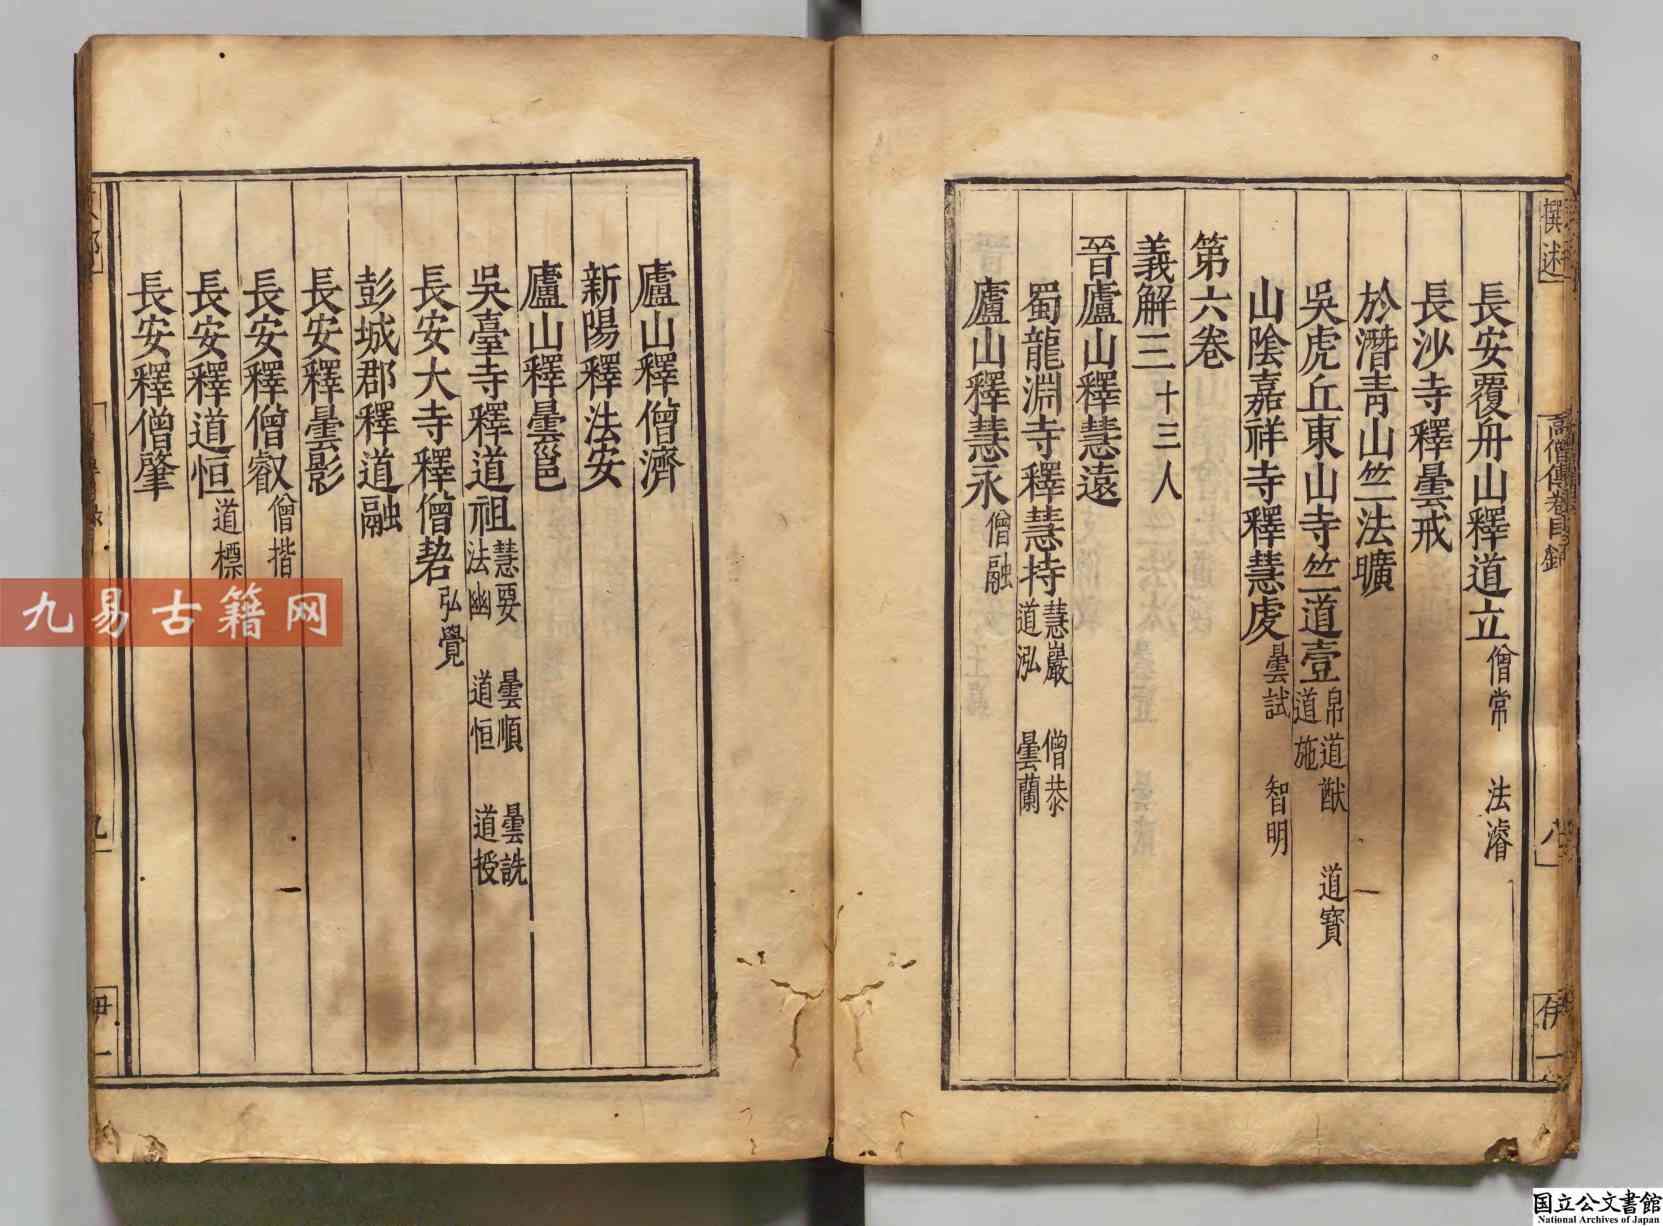 長安覆舟山釋道立 僧常 法濬
長沙寺釋曇戒
於潛青山竺法曠
吳虎丘東山寺竺道壹 帛道猷 道寶 道施
山陰嘉祥寺釋慧虔 曇試 智明
第六卷
義解三 十三人
晉廬山釋慧遠
蜀龍淵寺釋慧持 慧巖 僧恭 道泓 曇蘭
廬山釋慧永 僧融
廬山釋僧濟
新陽釋法安
廬山釋曇邕
吳臺寺釋道祖 慧要 曇順 曇詵 法幽 道恒 道授
長安大寺釋僧䂮 弘覺
彭城郡釋道融
長安釋曇影
長安釋僧叡 僧揩
長安釋道恒 道標
長安釋僧肇
撰述
高僧傳卷目錄
八
伊一
九易古籍网
国立公文書館
National Archives of Japan